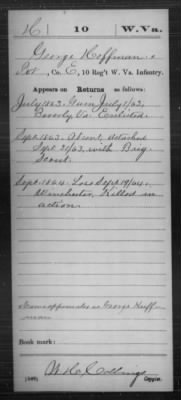 H | 10 | W. Va.
George Hoffman
Pvt, Co. E, 10 Reg't W. Va. Infantry.
Appears on Returns as follows:
July 1863. Gain July 1/63,
Beverly Va. Enlisted.
Sept. 1863. Absent, detached
Sept. 21/63, with Brig.
Scout.
Sept. 1864. Loss Sept. 19/64.
Winchester, Killed in
action.
Name appears also as George Huff-
man
Book mark:
W. H. Collings
Copyist.